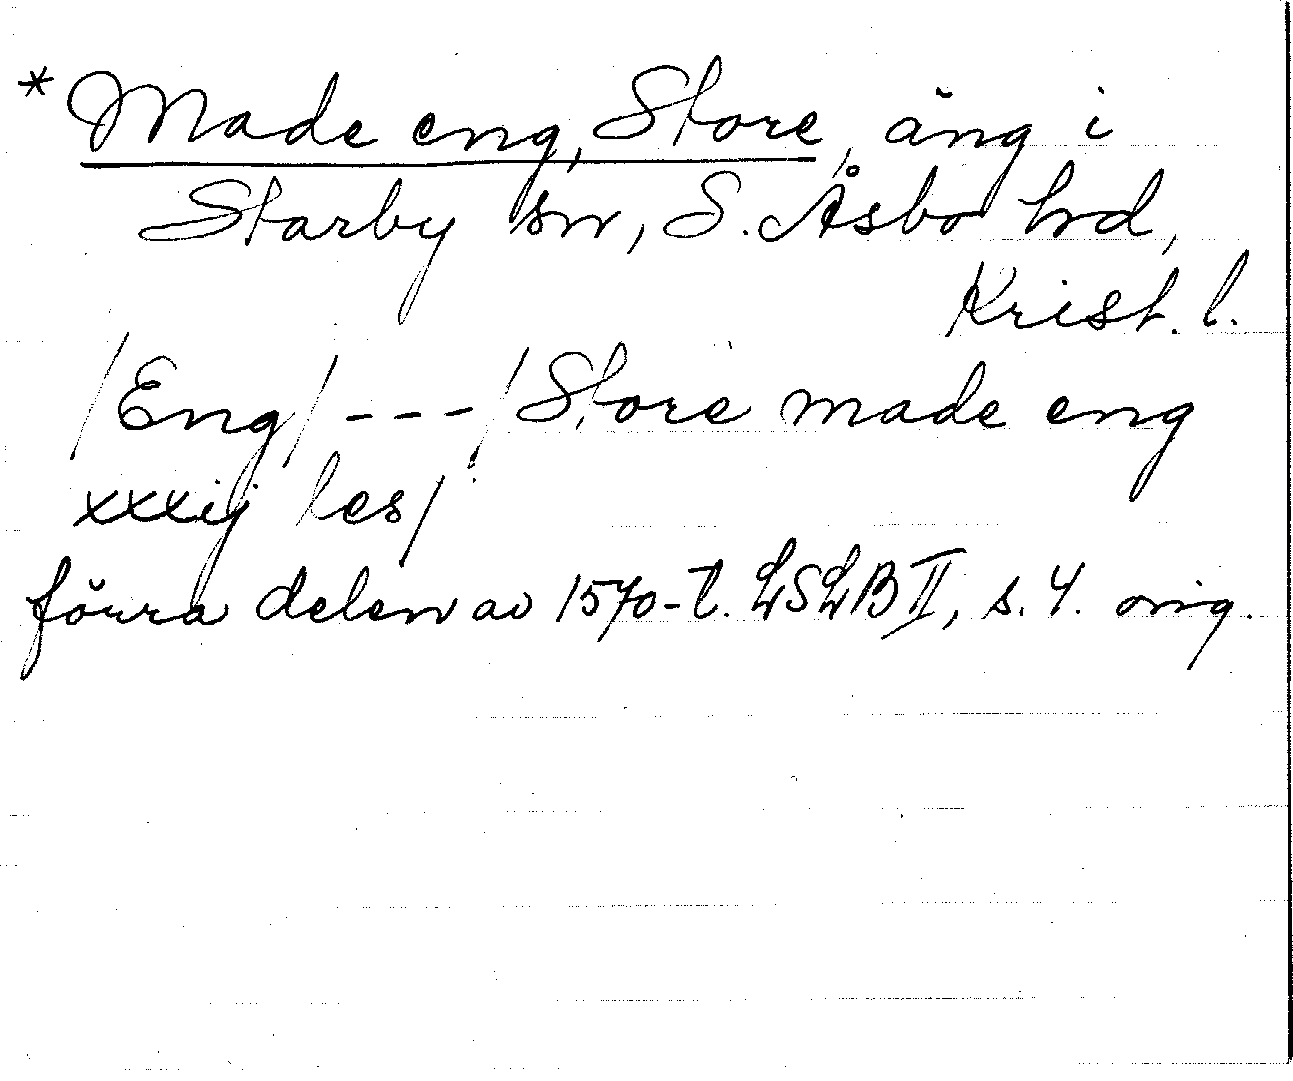 *Made eng, Store, äng i
Starby sn, S. Åsbo hd,
Krist. l.
/Eng/ --- /Store made eng
xxxij les/
förra delen av 1570-t. LSLB II, s. 4. orig.